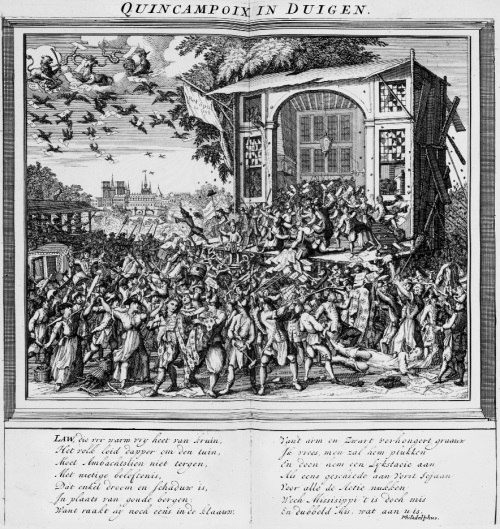 QUINCAMPOIX IN DUIGEN.
LAW, die vry warm vry heet van kruin,
Het volk leid dapper om den tuin,
Moet Ambachtslien niet tergen,
Met nietige beloftenis,
Dat enkel droom en schaduw is,
In plaats van goude bergen.
Want raakt gy noch eens in de klaauw,
Vant arm en Zwart verhongert graauw
Ik vrees, men zal hem plukken
En doen hem een Lykstacie aan
Als eens geschiede aan Vorst Sejaan
Voor all' de Actie nukken
Missisippi t is doch mis
En dubbeld Mis, wat aan u is.
Philadelphus.